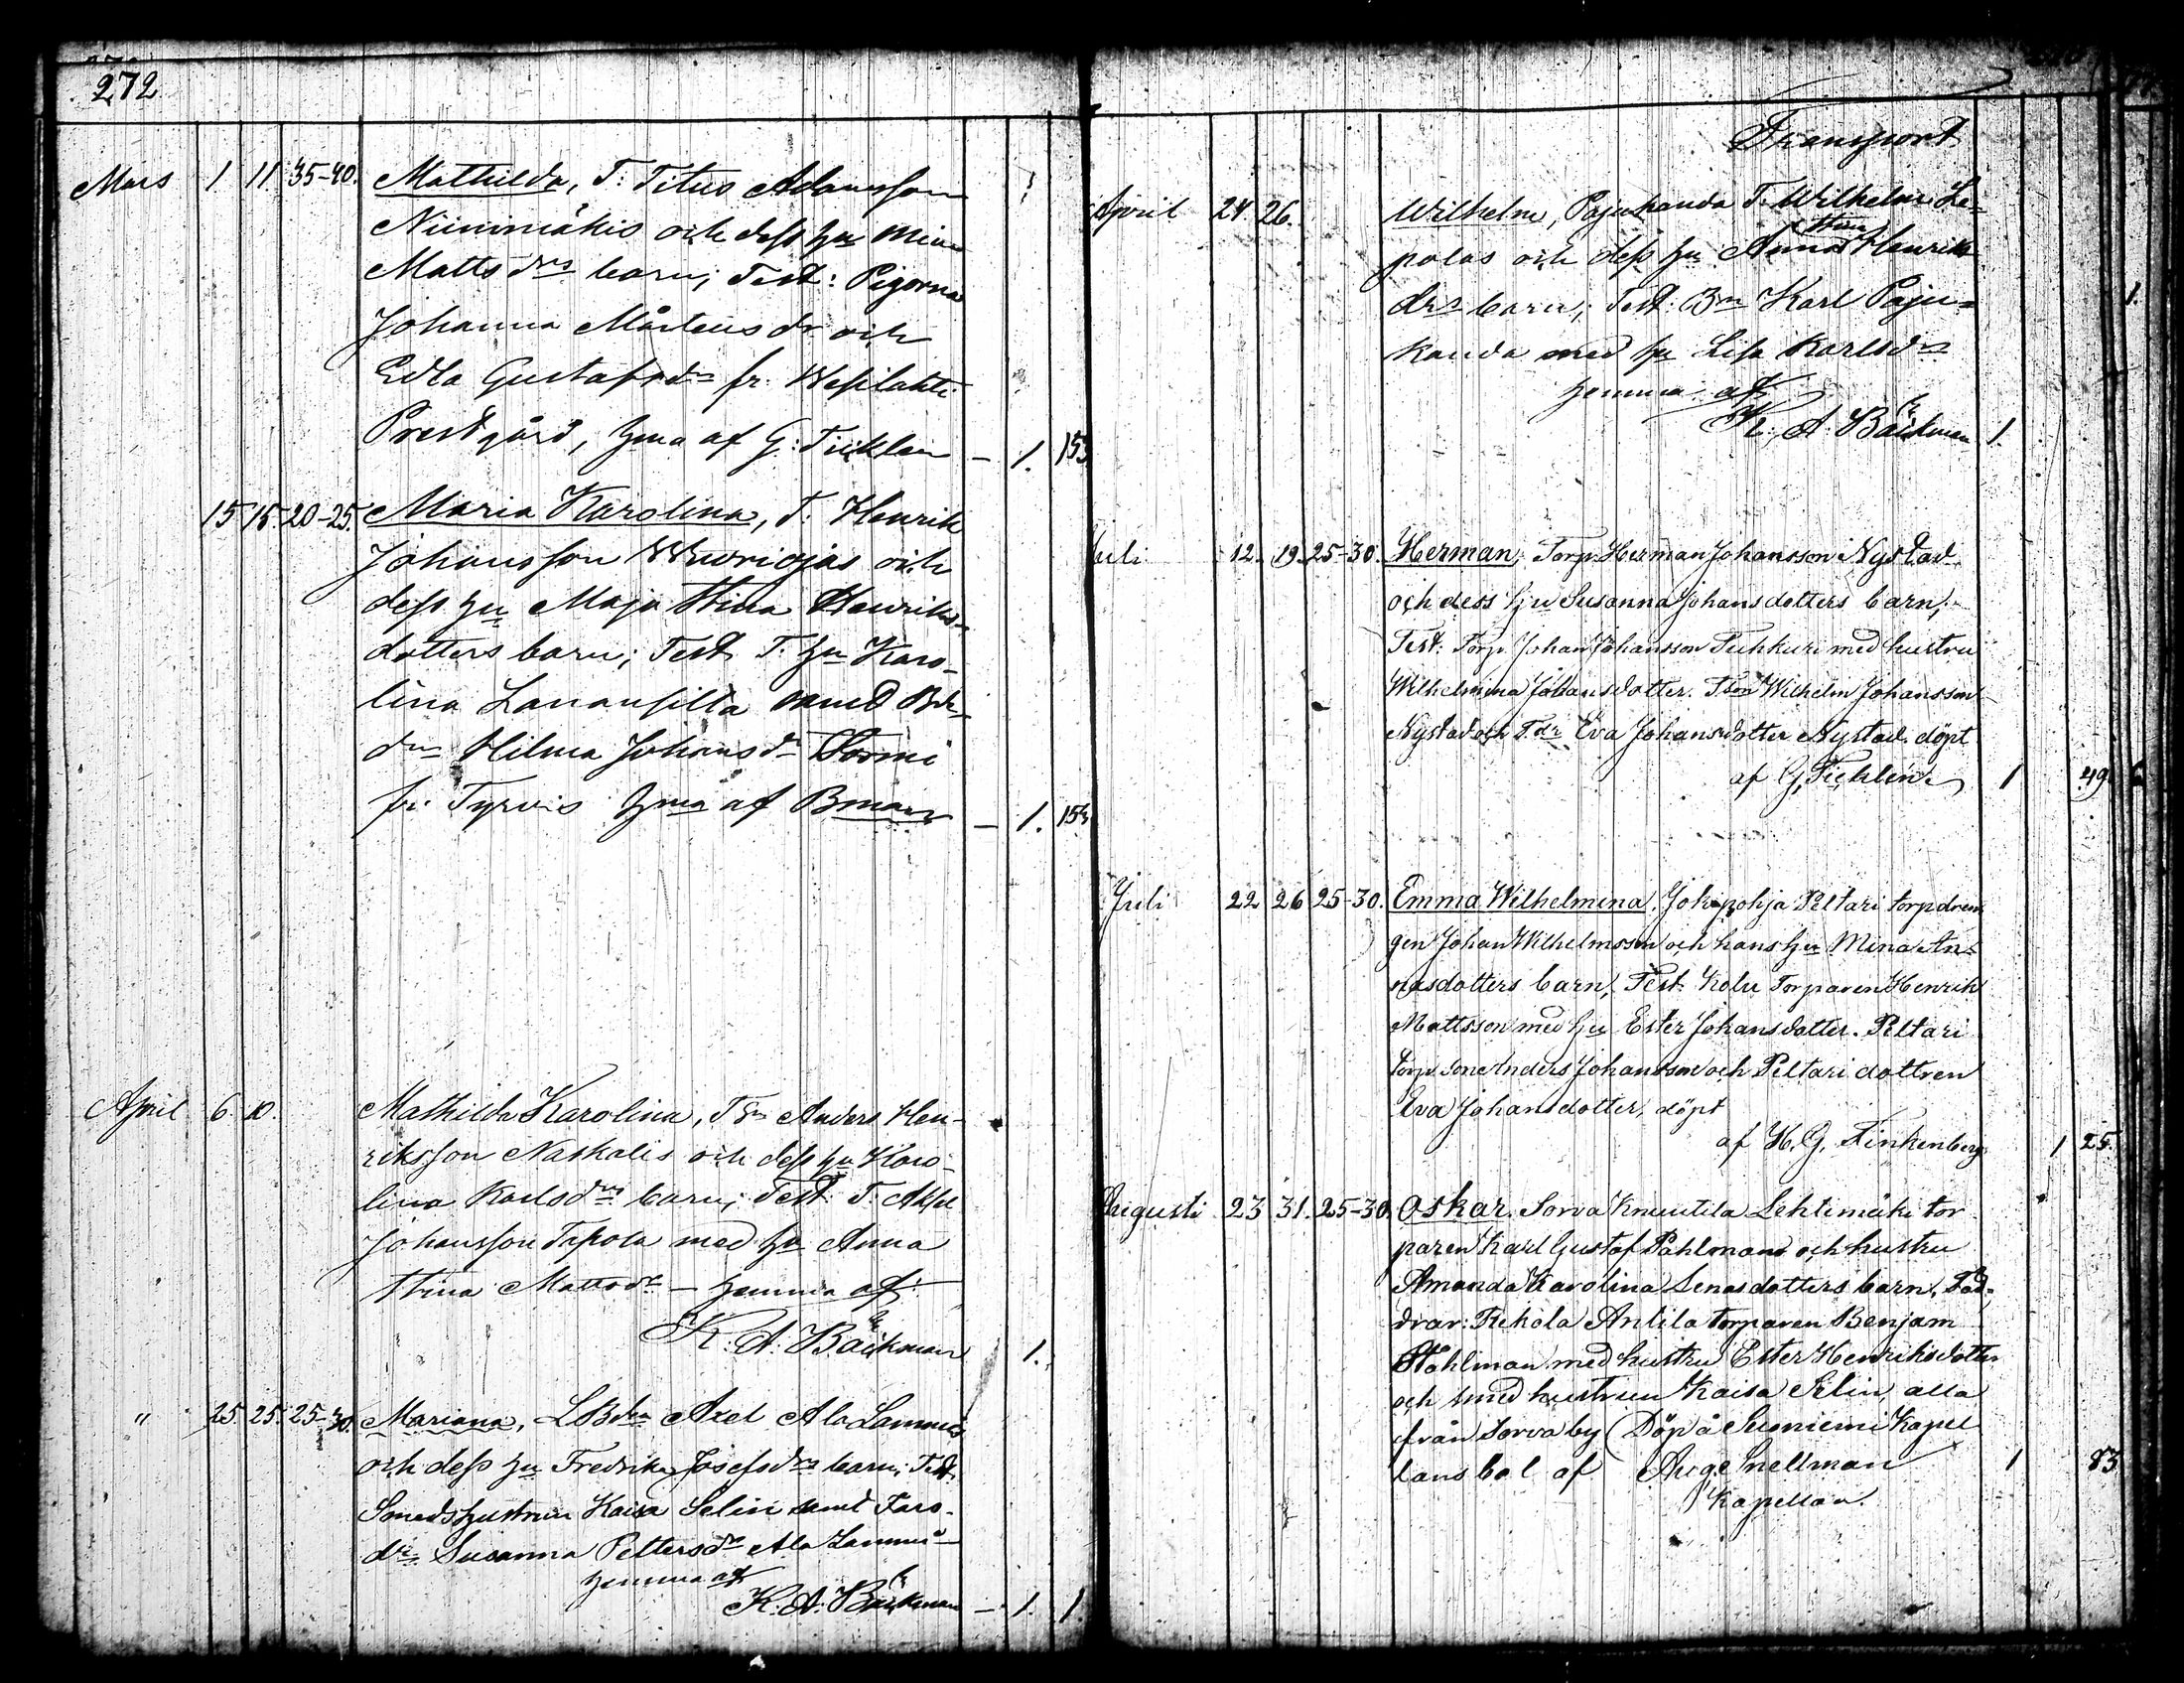 272
Mars 1 11. 35-40. Mathilda, T: Titus Adamsson
Niinimäkis och dess hu Mina
Matts drs barn; Test: Pigorna
Johanna Mårtens dr och
Edla Gustafsdr fr. Wesilahti
Prestgård, hma af G: Ticklen — 1. 153
15 15. 20-25. Maria Karolina, T. Henrik
Johansson Wuoriojas och
dess hu Maja Stina Henriks-
dotters barn; Test T. hu Karo-
lina Lanansilta samt Bde
drn Hilma Johansdr Sormi
fr. Tyrvis hma af Bman — 1. 153
April 6 10. Mathilda Karolina, Anders Hen-
riksson Naskalis och dess hu Karo-
lina Karlsdrs barn; Test: T. Aksel
Johansson Tapola med hu Anna
Stina Mattsdr — hemma af:
K. A. Bäckman 1.
" 25. 25. 25-30. Mariana, LBdn Axel Ala Lammis
och dess hu Fredrika Josefsdrs barn; Test.
Smedshustrun Kaisa Selin samt
drn Susanna Pettersdr Ala Lammi —
hemma af
K. A. Bäckman — 1. 1.
Transport
April 24 26. Wilhelm, Pajukanda T. Wilhelm Le-
Stina
polas och dess hu Anna Henriks
drs barn; Test: Bn Karl Paju-
kanda med hu Lisa Karlsdr
hemma af
K. A. Bäckman 1.
Juli 12. 19. 25-30. Herman, Torp. Herman Johansson Nystad
och dess hu Susanna Johansdotters barn;
Test: Torp. Johan Johansson Tuhkuri med hustru
Wilhelmina Johansdotter. Wilhelm Johansson
Nystad och T.dr Eva Johansdotter Nystad. döpt
af G. Ticklén. 1 49.
Juli 22 26 25-30. Emma Wilhelmina, Jokipohja Peltari torpdren
gen Johan Wilhelmsson och hans hu Mina An-
nasdotters barn, Test. Kolu Torparen Henrik
Mattsson med hu Ester Johansdotter. Peltari
torp. sone Anders Johansson och Peltari dottren
Eva Johansdotter, döpt
af H. G. Finkenberg 1 25.
Augusti 23 31. 25-30. Oskar, Sorva Knuutila Lehtimäki tor
paren Karl Gustaf Påhlmans och hustru
Amanda Karolina Lenasdotters barn, Fad-
drar: Rekola Anlila torparen Benjam
Ståhlman med hustru Ester Henriksdotter
och smed hustrun Kaisa Selin, alla
från Sorva by (Döp å Suoniemi Kapel
lans bol af Aug. Snellman 1 83
Kapellan.